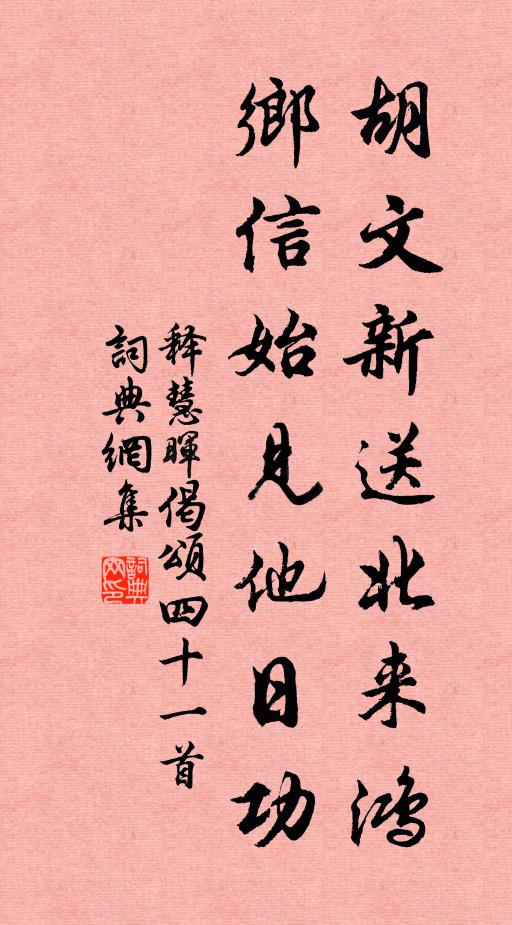 胡文新送北来鸿
鄉信始见他日功
释慧暉偈頌四十一首
詞典網集
詞典网印